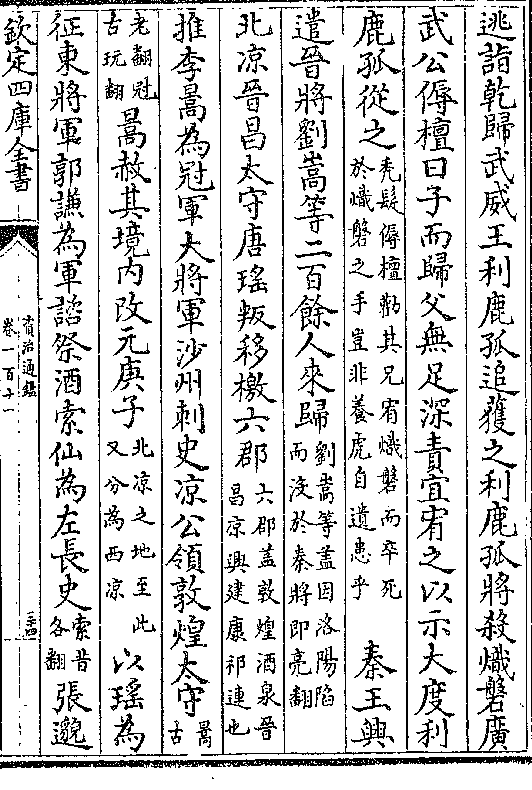 逃詣乾歸武威王利鹿孤追獲之利鹿孤將殺熾磐廣
武公傉檀曰子而歸父無足深責宜宥之以示大度利
鹿孤從之禿髮傉檀勸其兄宥熾磐而卒死於熾磐之手豈非養虎自遺患乎秦王興
遣晉將劉嵩等二百餘人來歸劉嵩等蓋因洛陽陷而没於秦將即亮翻
北凉晉昌太守唐瑤叛移檄六郡六郡蓋敦煌酒泉晉昌凉興建康祁連也
推李暠為冠軍大將軍沙州刺史凉公領敦煌太守暠古
老翻冠古玩翻暠赦其境内改元庚子北凉之地至此又分為西凉以瑤為
征東將軍郭謙為軍諮祭酒索仙為左長史索昔各翻張邈
欽定四庫全書
資治通鑑
卷一百十一